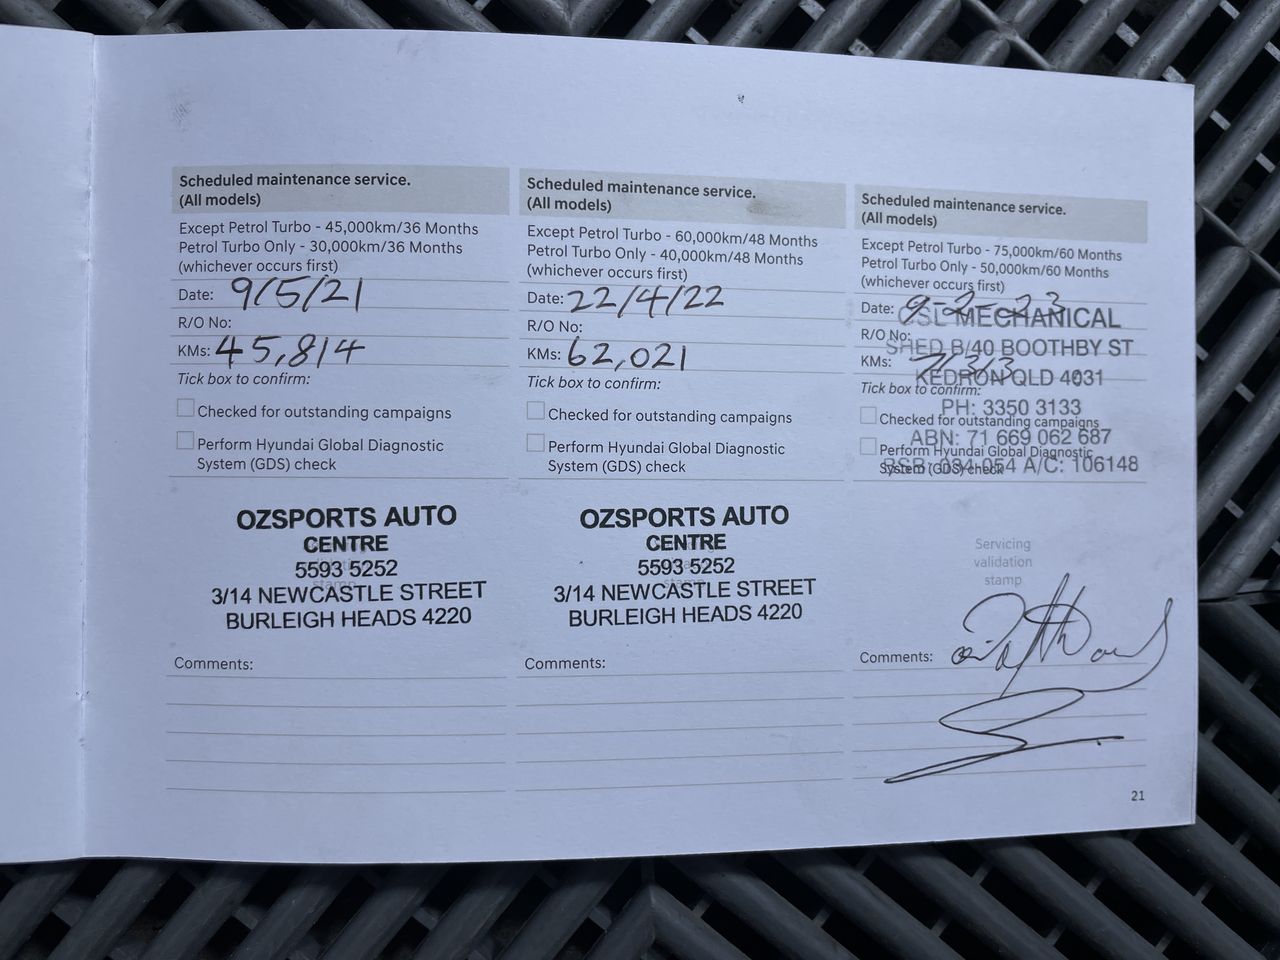 Scheduled maintenance service.
(All models)
Except Petrol Turbo - 45,000km/36 Months
Petrol Turbo Only - 30,000km/36 Months
(whichever occurs first)
Date: 9/5/21
R/O No:
KMs: 45,814
Tick box to confirm:
Checked for outstanding campaigns
Perform Hyundai Global Diagnostic
System (GDS) check
OZSPORTS AUTO
CENTRE
5593 5252
3/14 NEWCASTLE STREET
BURLEIGH HEADS 4220
Comments:
Scheduled maintenance service.
(All models)
Except Petrol Turbo - 60,000km/48 Months
Petrol Turbo Only - 40,000km/48 Months
(whichever occurs first)
Date: 22/4/22
R/O No:
KMs: 62,021
Tick box to confirm:
Checked for outstanding campaigns
Perform Hyundai Global Diagnostic
System (GDS) check
OZSPORTS AUTO
CENTRE
5593 5252
3/14 NEWCASTLE STREET
BURLEIGH HEADS 4220
Comments:
Scheduled maintenance service.
(All models)
Except Petrol Turbo - 75,000km/60 Months
Petrol Turbo Only - 50,000km/60 Months
(whichever occurs first)
Date: 9-2-23
MECHANICAL
R/O No:
SHED B/40 BOOTHBY ST
KMs:
KEDRON QLD 4031
Tick box to confirm:
PH: 3350 3133
Checked for outstanding campaigns
ABN: 71 669 062 687
Perform Hyundai Global Diagnostic
A/C: 106148
System (GDS) check
Servicing
validation
stamp
Comments:
21